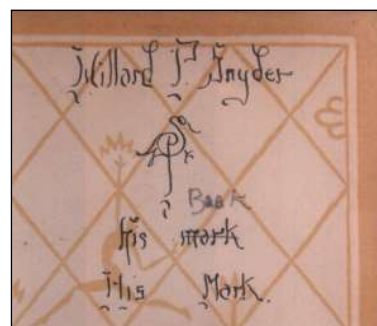 Willard P. Snyder
Book
his mark
His Mark.